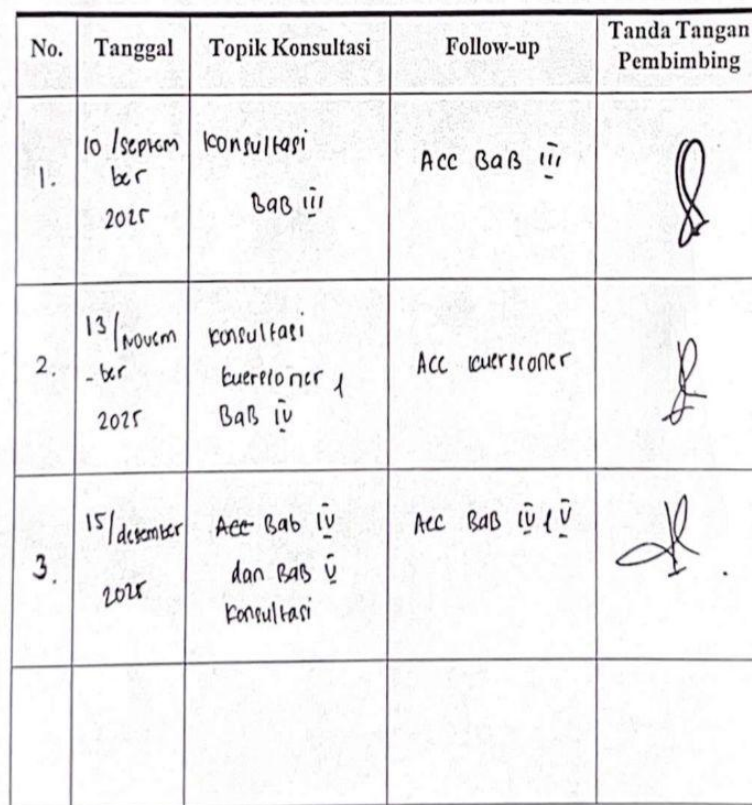 No. Tanggal Topik Konsultasi Follow-up Tanda Tangan Pembimbing
1. 10 /septem
ber
2025
Konsultasi
BaB III
Acc BaB III
2. 13/Novem
-ber
2025
Konsultasi
kuersioner &
BaB IV
Acc kuersioner
3. 15/desember
2025
Acc Bab IV
dan BaB V
Konsultasi
Acc BaB IV & V